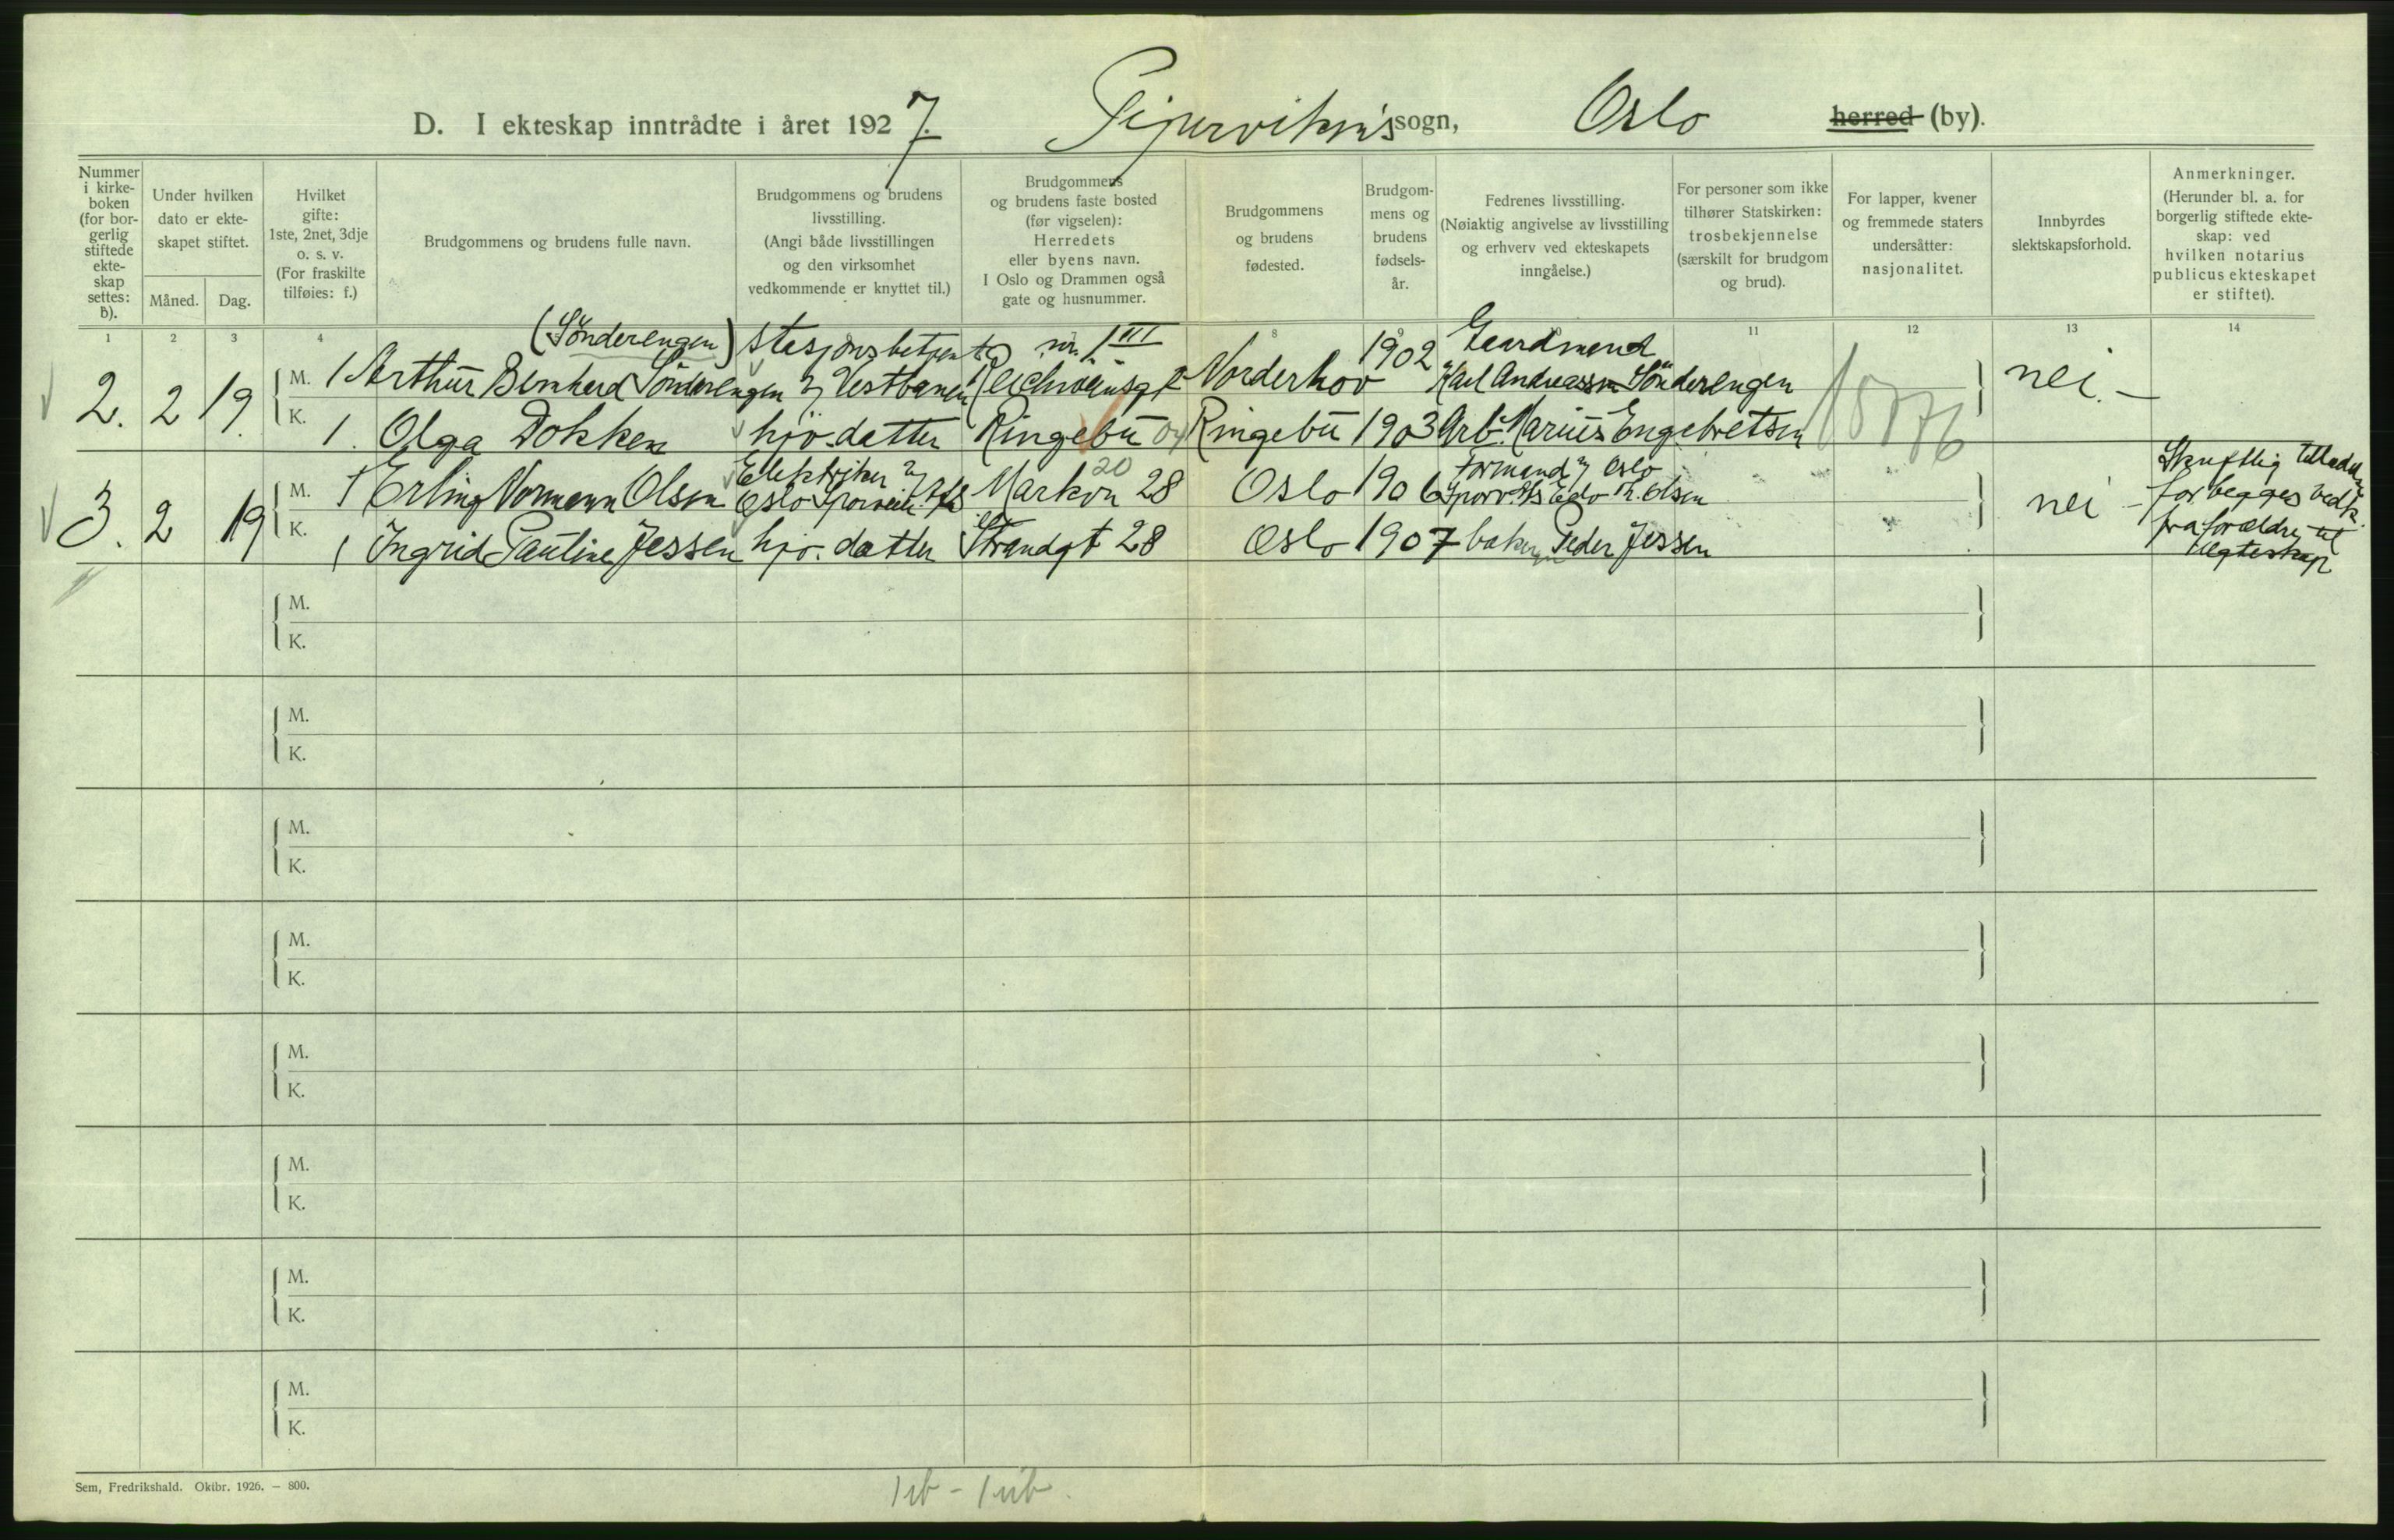 D. I ekteskap inntrådte i året 1927. Pipervikens sogn, Oslo herred (by).
Nummer i kirkeboken (for borgerlig stiftede ekteskap settes: b).
Under hvilken dato er ekteskapet stiftet.
Måned. Dag.
Hvilket gifte: 1ste, 2net, 3dje o. s. v. (For fraskilte tilføies: f.)
Brudgommens og brudens fulle navn.
Brudgommens og brudens livsstilling. (Angi både livsstillingen og den virksomhet vedkommende er knyttet til.)
Brudgommens og brudens faste bosted (før vigselen): Herredets eller byens navn. I Oslo og Drammen også gate og husnummer.
Brudgommens og brudens fødested.
Brudgommens og brudens fødselsår.
Fedrenes livsstilling. (Nøiaktig angivelse av livsstilling og erhverv ved ekteskapets inngåelse.)
For personer som ikke tilhører Statskirken: trosbekjennelse (særskilt for brudgom og brud).
For lapper, kvener og fremmede staters undersåtter: nasjonalitet.
Innbyrdes slektskapsforhold.
Anmerkninger. (Herunder bl. a. for borgerlig stiftede ekteskap: ved hvilken notarius publicus ekteskapet er stiftet).
1 2 3 4 8 9 11 12 13 14
(Sönderengen) stasjonsbetjent nr. 1 III 1902 Gaardmand
2. 2 19. M. 1 Arthur Bernhard Sönderengen v Vestbanen Reichweinsgt Norderhov Karl Andreassen Sönderengen nei. —
K. 1. Olga Dokken hjv. datter Ringebu 04 Ringebu 1903 Arb. Marius Engebretsen
Elektriker v 20 Formand v Oslo Skriftlig tilladelse
3. 2 19 M. 1 Erling Normann Olsen Oslo Sporveier A/s Markvn 28 Oslo 1906 Sporv. A/s Edv. Th. Olsen nei - for begges vedk.
K. 1 Ingrid Pauline Jessen hjv. datter Strandgt 28 Oslo 1907 baker Peder Jessen fra forældre til
Ægteskap
M.
K.
M.
K.
M.
K.
M.
K.
M.
K.
M.
K.
M.
K.
M.
K.
Sem, Fredrikshald. Oktbr. 1926. — 800.